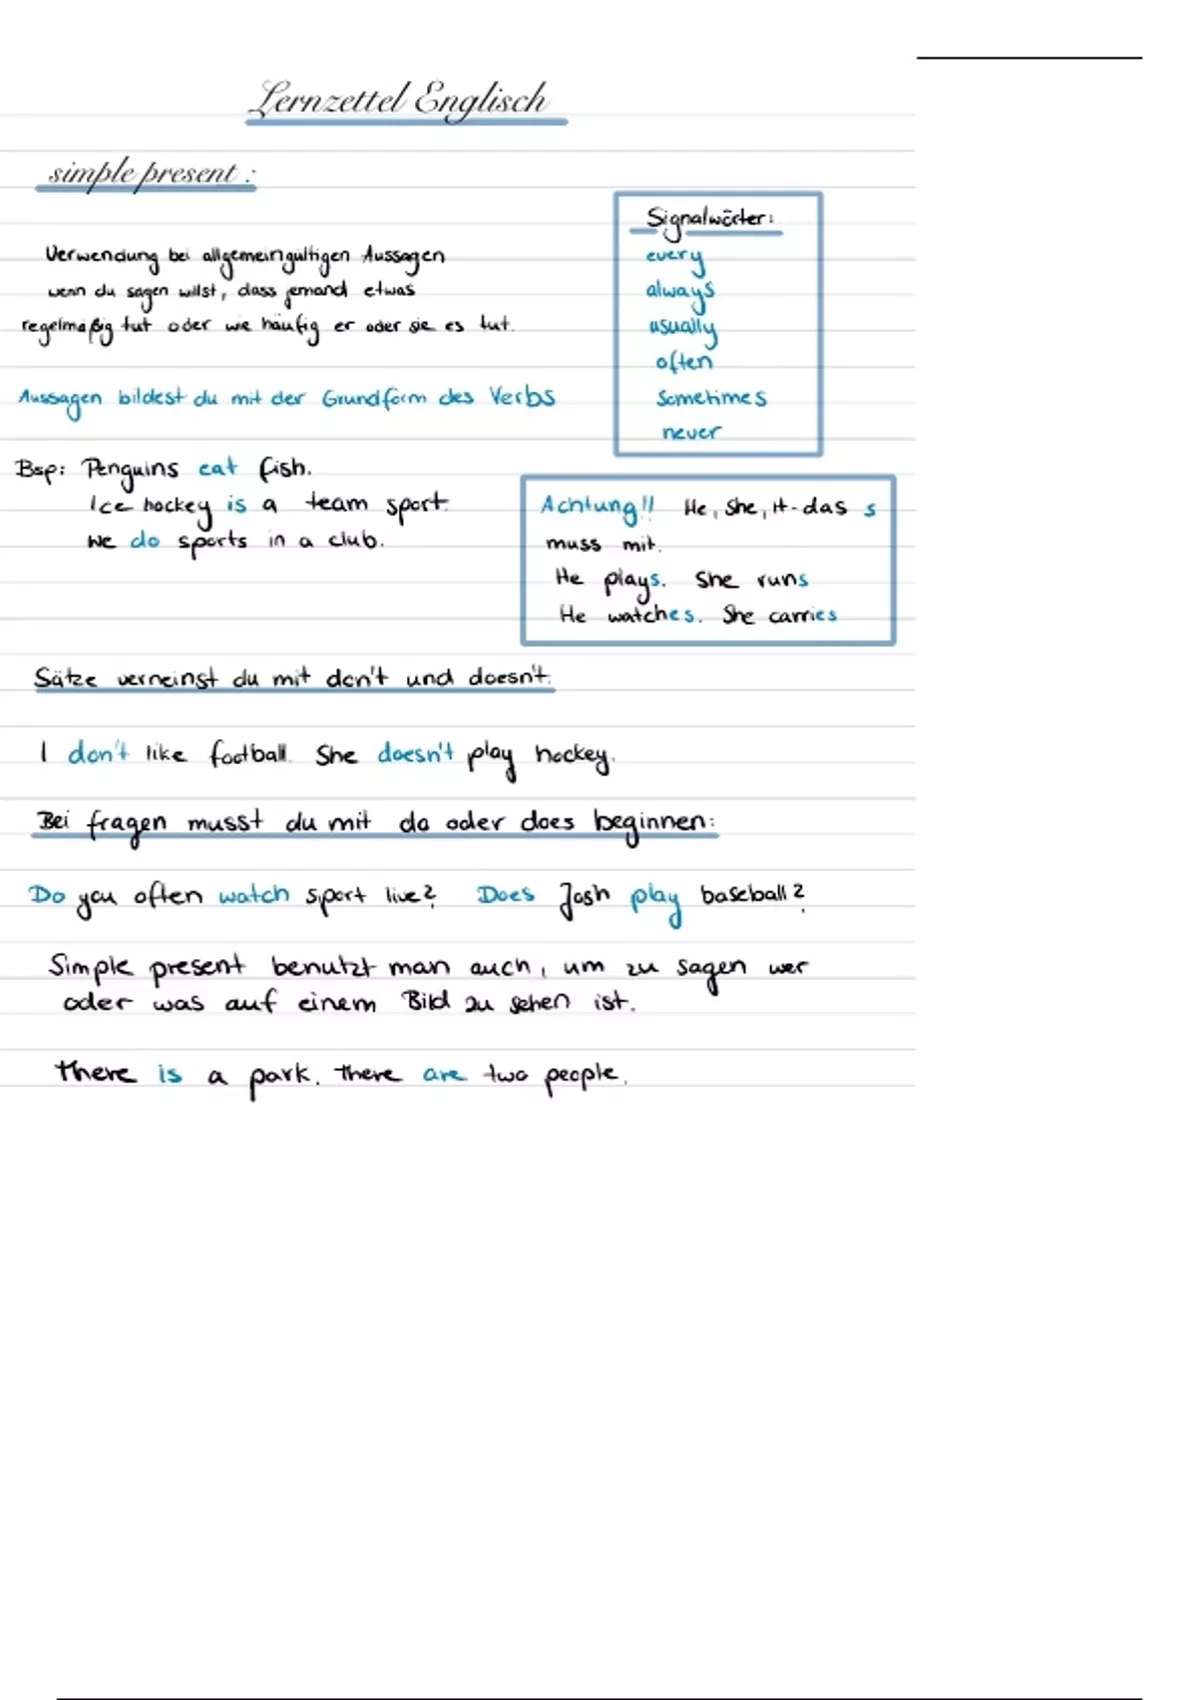 Lernzettel Englisch
simple present :
Verwendung bei allgemeingültigen Aussagen
wenn du sagen willst, dass jemand etwas
regelmäßig tut oder wie häufig er oder sie es tut.
Aussagen bildest du mit der Grundform des Verbs
Signalwörter:
every
always
usually
often
sometimes
never
Bsp: Penguins eat fish.
Ice hockey is a team sport.
We do sports in a club.
Achtung!! He, She, it - das s
muss mit.
He plays. She runs
He watches. She carries
Sätze verneinst du mit don't und doesn't.
I don't like football. She doesn't play hockey.
Bei fragen musst du mit do oder does beginnen:
Do you often watch sport live? Does Josh play baseball?
Simple present benutzt man auch, um zu sagen wer
oder was auf einem Bild zu sehen ist.
there is a park. there are two people.